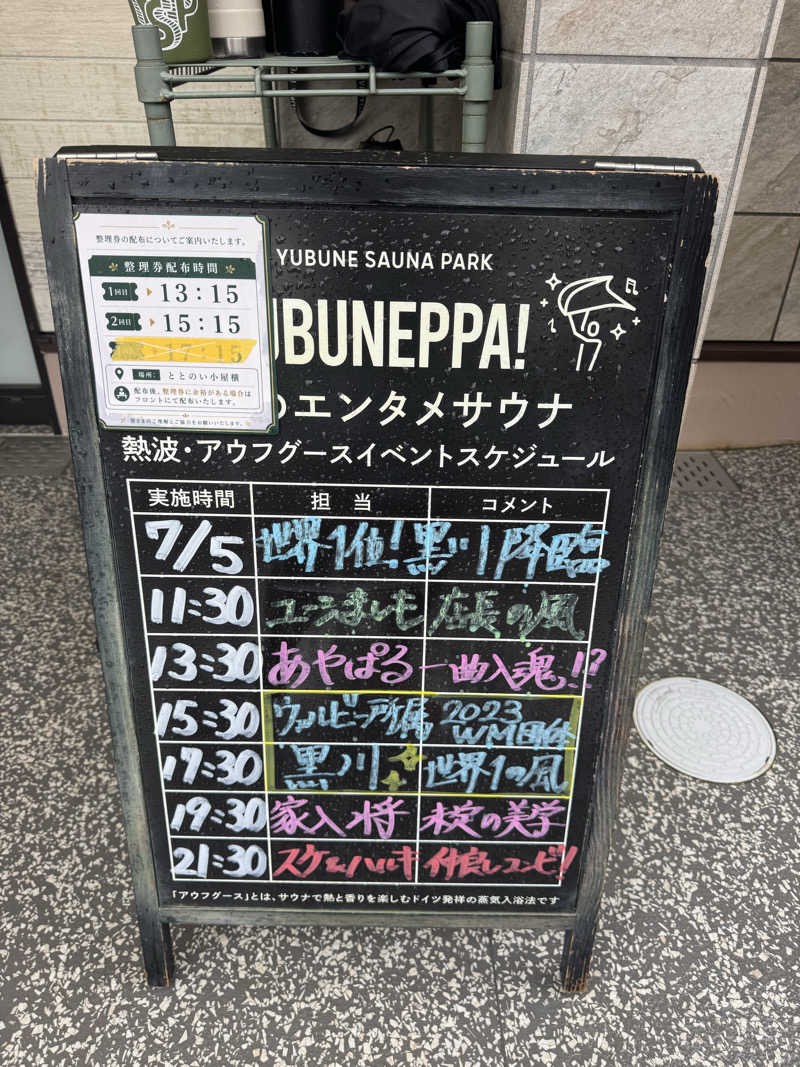 整理券の配布についてご案内いたします。
整理券配布時間
1回目 13:15
2回目 15:15
17:15
場所: ととのい小屋横
配布後、整理券に余裕がある場合は
フロントにて配布いたします。
皆さまのご理解とご協力をお願いいたします。
YUBUNE SAUNA PARK
UBUNEPPA!
のエンタメサウナ
熱波・アウフグースイベントスケジュール
実施時間 担当 コメント
7/5 世界1位!黒川降臨
11:30 ユージましも 店長の風
13:30 あやぱる 一曲入魂!?
15:30 ウェルビー所属 2023 WM団体
17:30 黒川 世界1の風
19:30 家入将 の美学
21:30 スケ&ハルキ 仲良しコンビ!
「アウフグース」とは、サウナで熱と香りを楽しむドイツ発祥の蒸気入浴法です